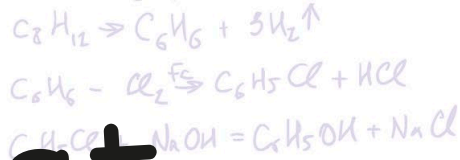 C₈H₁₂ → C₆H₆ + 3H₂↑
C₆H₆ - Cl₂ →ᶠᶜ C₆H₅Cl + HCl
NaOH = C₆H₅OH + NaCl